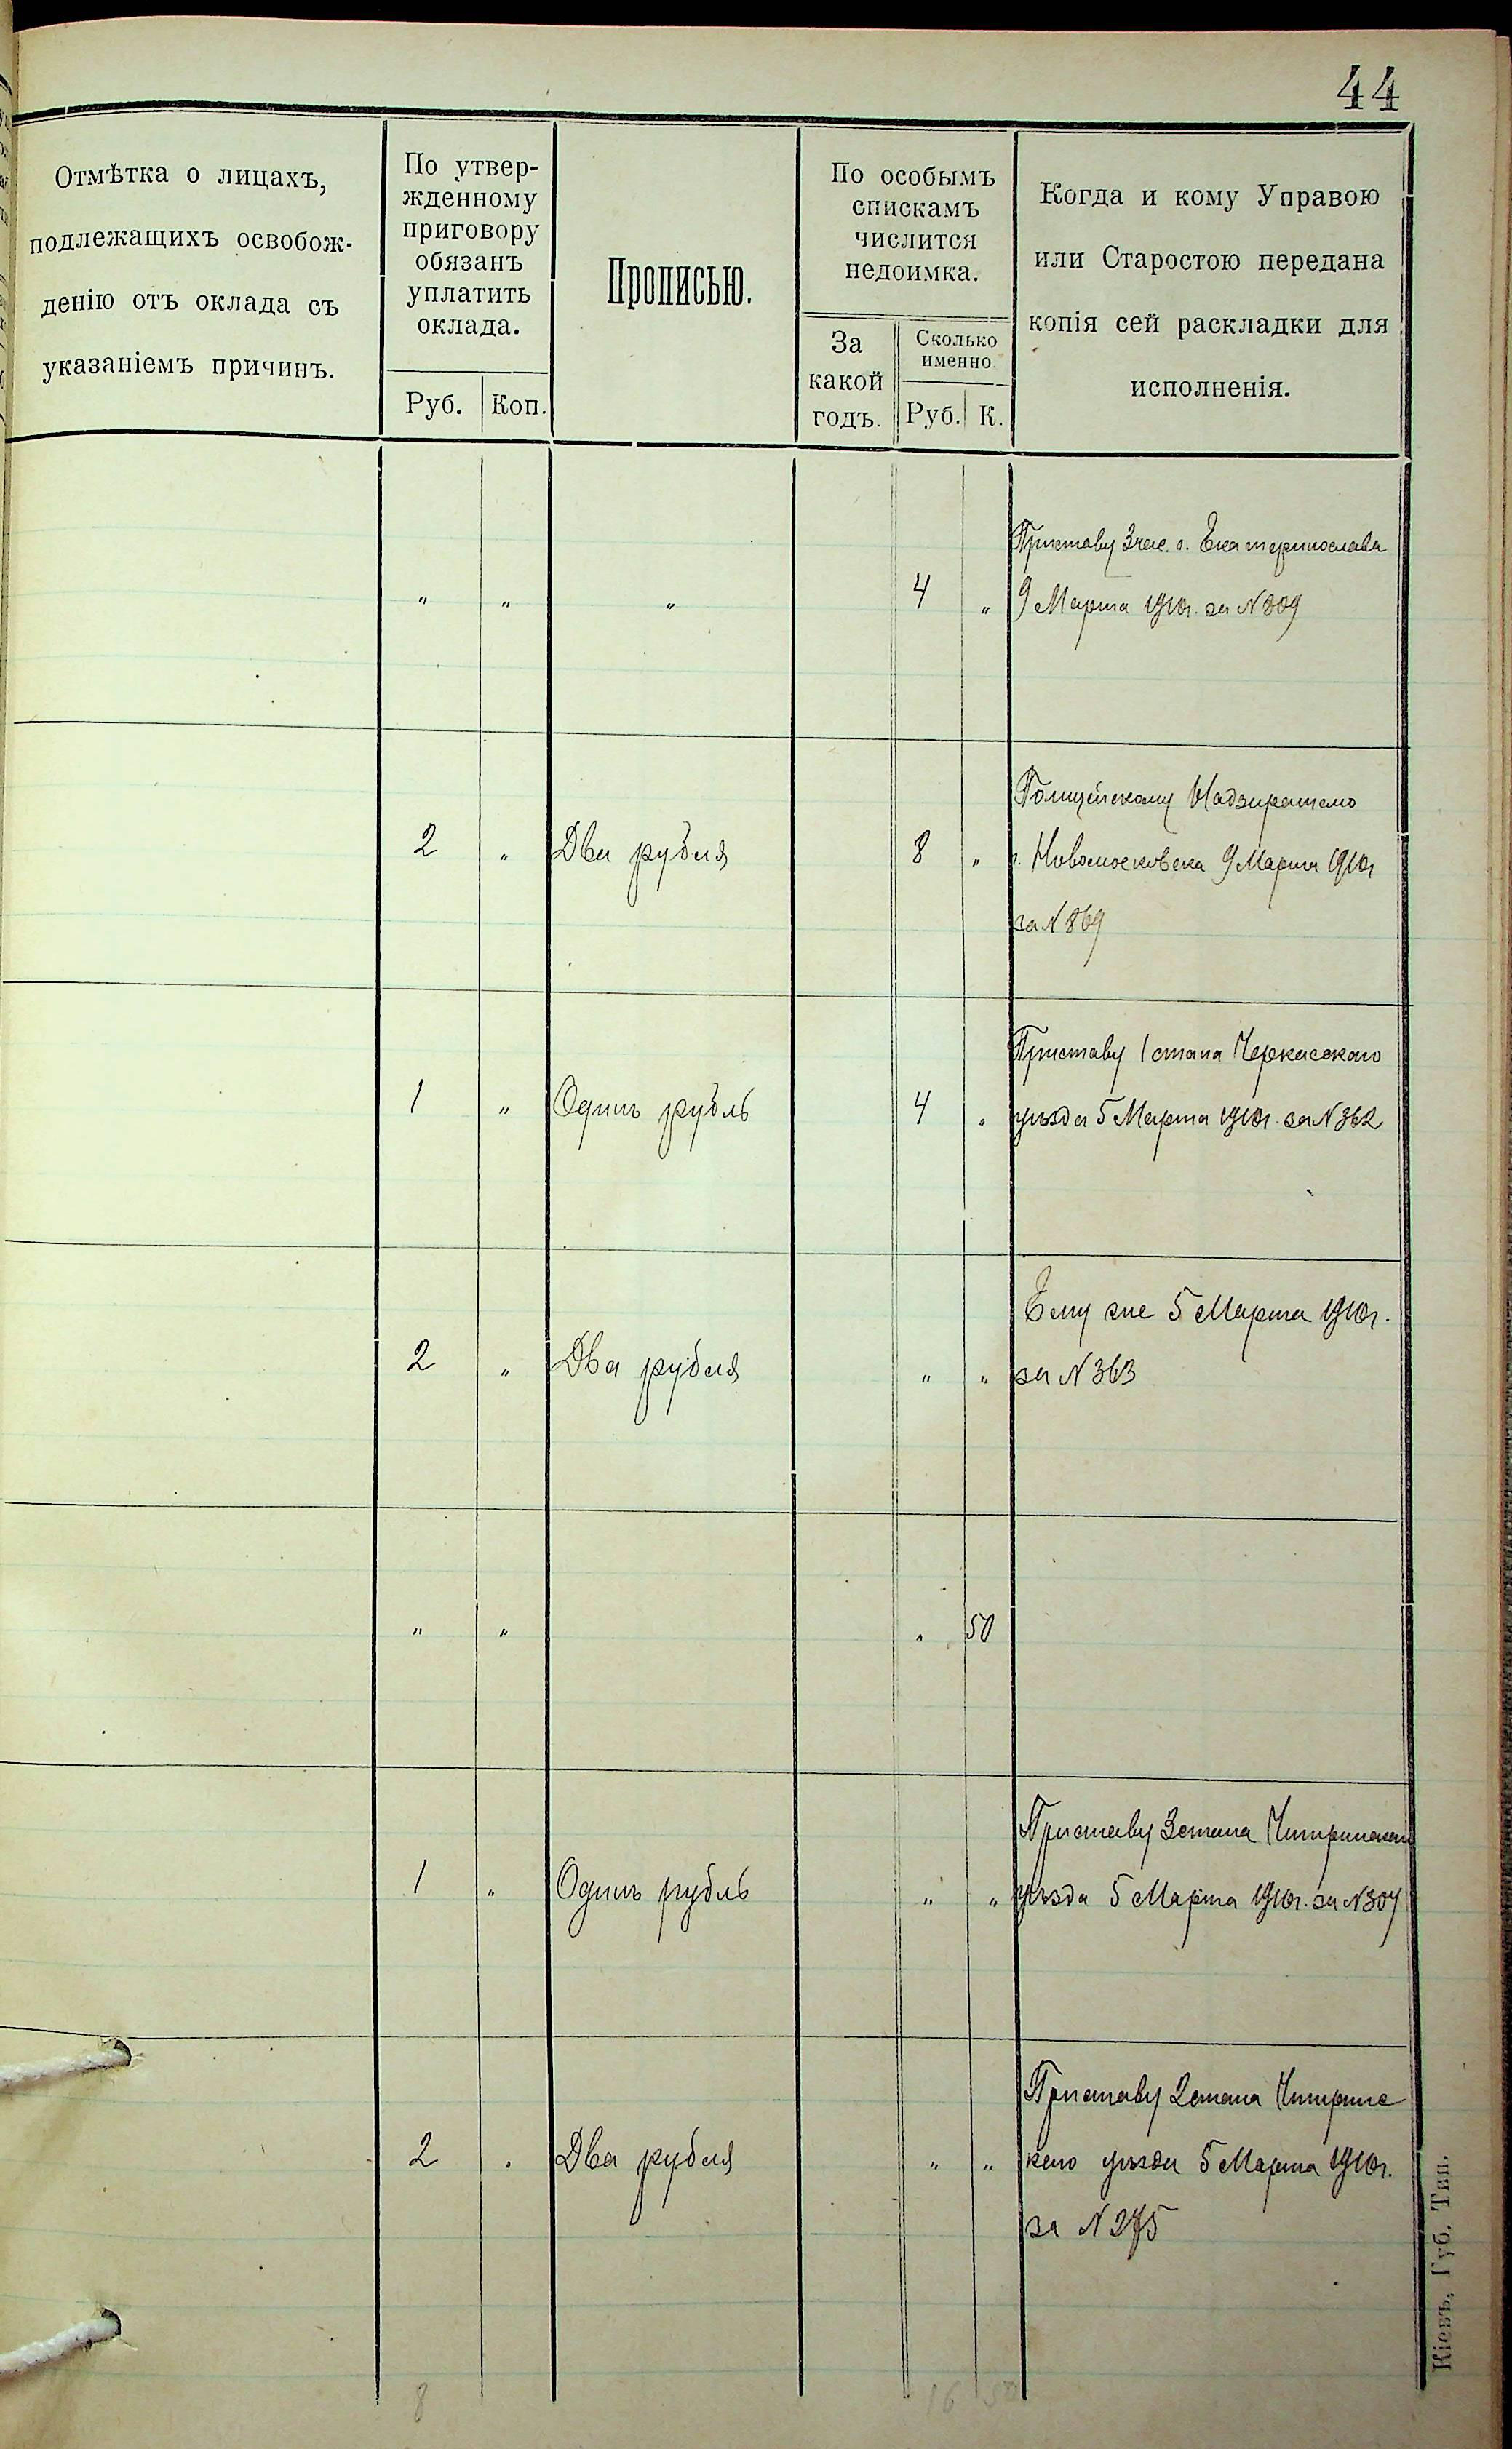 44
Отмѣтка о лицахъ,
подлежащихъ освобож-
денію отъ оклада съ
указаніемъ причинъ.
По утвер-
жденному
приговору
обязанъ
уплатить
оклада.
Руб. Коп.
Прописью.
По особымъ
спискамъ
числится
недоимка.
За
какой
годъ.
Сколько
именно.
Руб. К.
Когда и кому Управою
или Старостою передана
копія сей раскладки для
исполненія.
Приставу 3 час. г. Екатеринослава
" " " 4 " 9 Марта 1910г. за N 809
Полицейскому Надзирателю
2 " Два рубля 8 " г. Новомосковска 9 Марта 1910г
за N 869
Приставу 1 стана Черкасскаго
1 " Одинъ рубль 4 " уѣзда 5 Марта 1910г. за N 362
Ему же 5 Марта 1910г.
2 " Два рубля " " за N 363
" " " 50
Приставу 3 стана
1 " Одинъ рубль " " уѣзда 5 Марта 1910г. за N 307
Приставу 2 стана
2 " Два рубля " " уѣзда 5 Марта 1910г.
за N 275
8 16 50
Кіевъ, Губ. Тип.